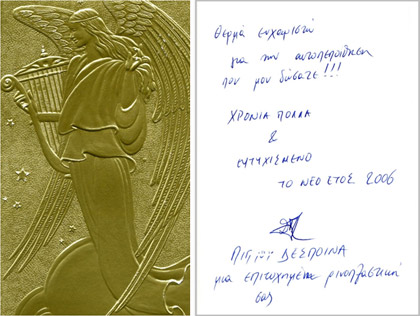 Θερμά ευχαριστώ
για την αυτοπεποίθηση
που μου δώσατε!!!
ΧΡΟΝΙΑ ΠΟΛΛΑ
&
ΕΥΤΥΧΙΣΜΕΝΟ
ΤΟ ΝΕΟ ΕΤΟΣ 2006
ΔΕΣΠΟΙΝΑ
μια επιτυχημένη ρινοπλαστική
σας